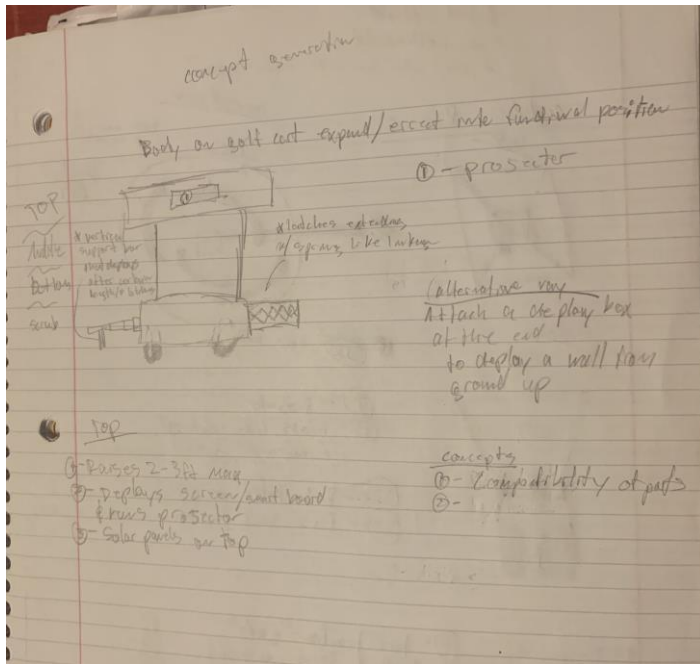 concept generation
Body on golf cart expand/errect into functional position
① - prosecter
TOP
Middle
Bottom
scrub
* vertical
support bar
that deploys
after certain
length
①
* latches extending
w/ spring, like linkage
(alternative way
Attach a deploy box
at the end
to deploy a wall from
ground up
Top
①- Raises 2-3ft Max
②- Deploys screen/smart board
& runs prosector
③- Solar panels on Top
concepts
①- Compatibility of parts
②-